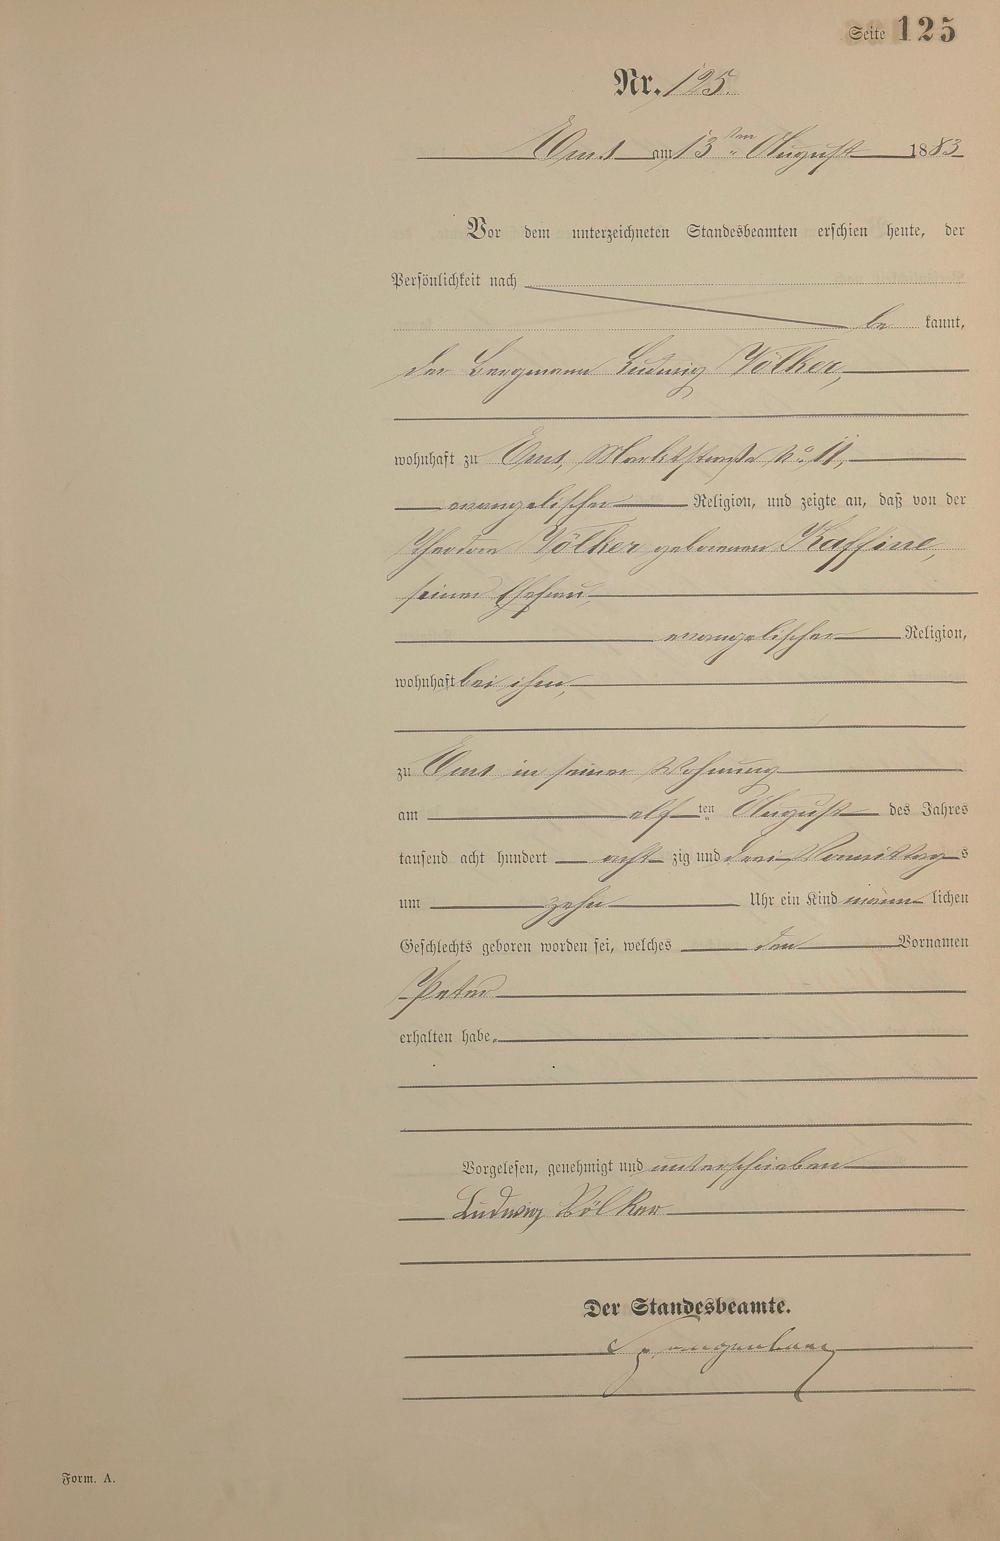 Seite 125
Nr. 125.
Ems am 13ten August 1883
Vor dem unterzeichneten Standesbeamten erschien heute, der
Persönlichkeit nach
be kannt,
der Bergmann Ludwig Völker,
wohnhaft zu Ems, Marktstraße No 11,
evangelischer Religion, und zeigte an, daß von der
Völker geborenen Kaffine,
seiner Ehefrau,
evangelischer Religion,
wohnhaft bei ihm,
zu Ems in seiner Wohnung
am elf ten August des Jahres
tausend acht hundert acht zig und drei Vormittag s
um zehn Uhr ein Kind männ lichen
Geschlechts geboren worden sei, welches den Vornamen
Peter
erhalten habe.
Vorgelesen, genehmigt und unterschrieben
Ludwig Völker
Der Standesbeamte.
Form. A.